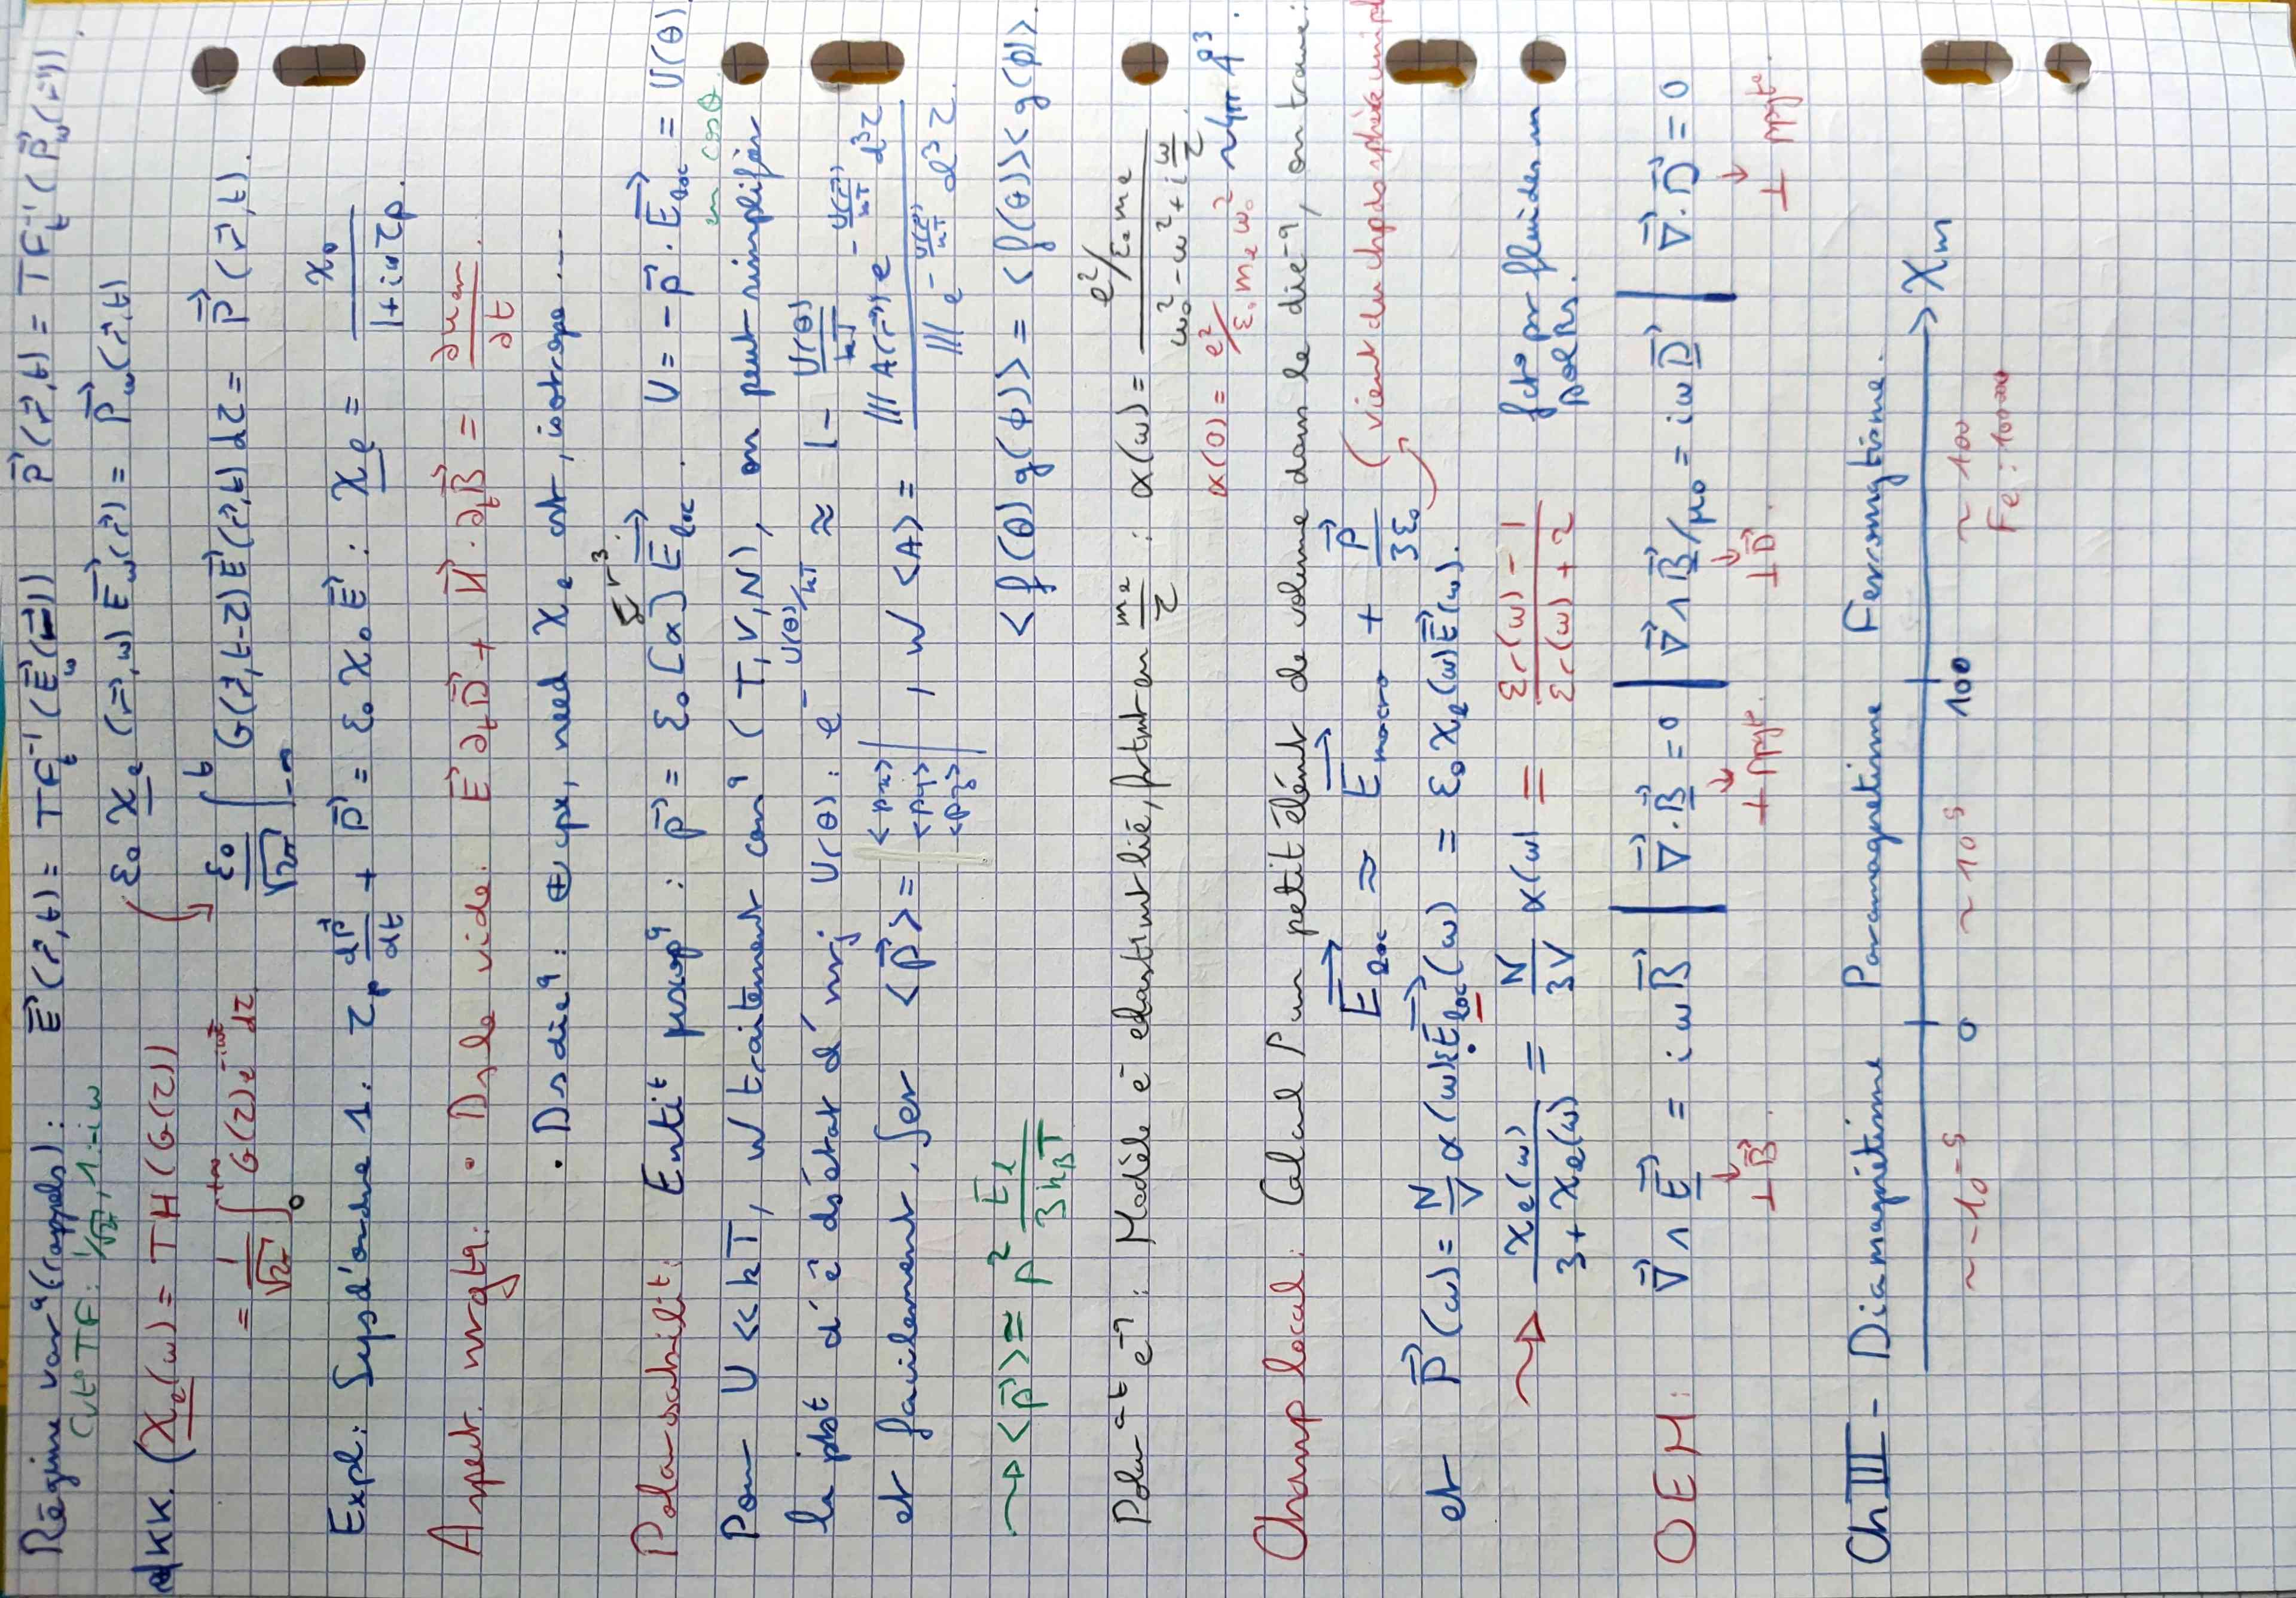 Régime var° (rappels) : E⃗(r⃗,t) = TF_t⁻¹(E⃗_ω(r⃗)) P⃗(r⃗,t) = TF_t⁻¹(P⃗_ω(r⃗)).
Cvt° TF : 1/√2π, 1, -iω ε₀ χ_e (r⃗,ω) E⃗_ω(r⃗) = P⃗_ω(r⃗,t)
KK. (χ_e(ω) = TH(G(τ))
= 1/√2π ∫₀^{+∞} G(τ) e^{-iωτ} dτ ε₀/√2π ∫_{-∞}^t G(r⃗,t-τ) E⃗(r⃗,t) dτ = P⃗(r⃗,t).
Expl : Sys d'ordre 1. τ_p dP⃗/dt + P⃗ = ε₀ χ₀ E⃗ : χ_e = χ₀ / 1+iωτ_p.
Aspect. nrgtq : • Ds le vide : E⃗ ∂_t D⃗ + H⃗. ∂_t B⃗ = ∂u_em/∂t.
• Ds die⁹ : ⊕ cpx, need χ_e cst, isotrope ...
r³.
Polarisabilit : Entit : p⃗ = ε₀ [α] E⃗_loc. U = - p⃗ . E⃗_loc = U(θ)
en cosθ
Pour U << kT, w/ traitement can⁹ (T,V,N), on peut simplifier
la pbt d'ê ds état d' nrj U(θ) : e^{-U(θ)/kT} ≈ 1 - U(θ)/kT
et facilement, <p⃗> = | <px> <py> <pz> | , w <A> = ∭ A(r⃗) e^{-U(r⃗)/kT} d³τ / ∭ e^{-U(r⃗)/kT} d³τ.
⤳ <p⃗> ≃ p² E_l / 3k_BT <f(θ)g(φ)> = <f(θ)><g(φ)>.
Polar at e⁻⁹ : Modèle ē élastmt lié, frtmt en m_e/τ : α(ω) = e²/ε₀m_e / ω₀² - ω² + i ω/τ.
α(0) = e²/ε₀ m_e ω₀² ~ 4π Å³.
Champ local : Calcul P un petit élémt de volume dans le die⁻⁹, on trouve :
E⃗_loc ≈ E⃗_macro + P⃗/3ε₀ ( vient du chp ds sphère unipl
et P⃗(ω) = N/V α(ω) ε E⃗_loc(ω) = ε₀ χ_e(ω) E⃗(ω).
⤳ χ_e(ω) / 3+χ_e(ω) = N/3V α(ω) = ε_r(ω) - 1 / ε_r(ω) + 2 fct° pr fluides nn
polRs.
OEM : ∇⃗ ∧ E⃗ = iωB⃗ | ∇⃗.B⃗ = 0 | ∇⃗ ∧ B⃗/μ₀ = iωD⃗ | ∇⃗.D⃗ = 0
↓ ⊥B⃗. ↓ ⊥ ppgt°. ↓ ⊥D⃗. ↓ ⊥ ppgt°.
Ch III - Diamagnétisme Paramagnetisme Ferromgtisme.
0 100 > χ_m
~ -10⁻⁵ ~ 10⁻⁵ ~ 100
Fe : 10000